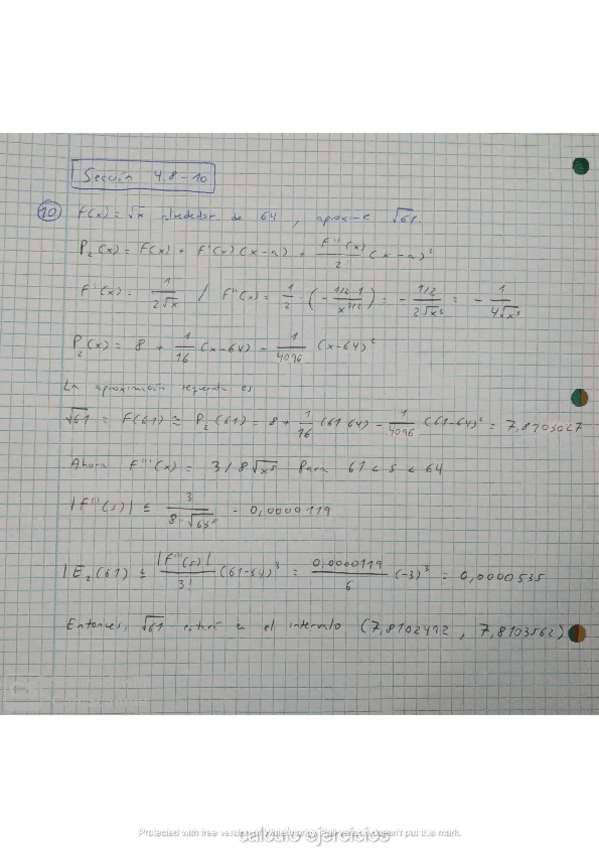 Sección 4.8-10
10 F(x) = √x alrededor de 64, aproxime √61.
P₂(x) = F(x) + F'(x)(x-a) + F''(x)/2! (x-a)²
F'(x) = 1/(2√x) / F''(x) = 1/2 · (- 1/2·1/x^(3/2)) = - (1/2)/(2√x³) = - 1/(4√x³)
P₂(x) = 8 + 1/16 (x-64) - 1/4096 (x-64)²
La aproximación requerida es
√61 = F(61) ≅ P₂(61) = 8 + 1/16 (61-64) - 1/4096 (61-64)² = 7,8103027
Ahora F'''(x) = 3/8√x⁵ Para 61 < s < 64
|F'''(s)| ≤ = 0,0000119
|E₂(61) ≤ |F'''(s)|/3! (61-64)³ = 0,0000119/6 (-3)³ = 0,0000535
Entonces, √61 en el intervalo (7,8102492 , 7,8103562)
Protected with free version of Watermarkly. Full version doesn't put this mark.
calculo ejercicios